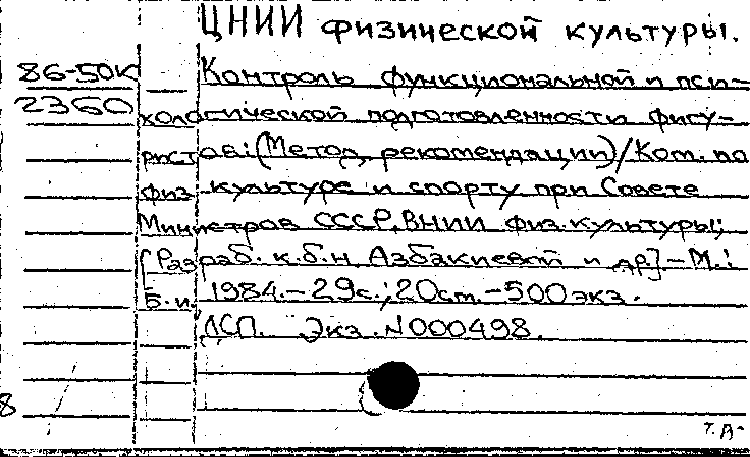 ЦНИИ физической культуры.
86-50к Контроль функциональной и пси-
2360 хологической подготовленности фигу-
ристов: (Метод. рекомендации)/Ком. по
физ. культуре и спорту при Совете
Министров СССР, ВНИИ физ. культуры;
[Разраб. к.б.н. Азбакиевой и др.] - М.:
Б.и. 1984. - 29с.; 20см. - 500экз.
ДСП. Экз. N000498.
8
т. А-